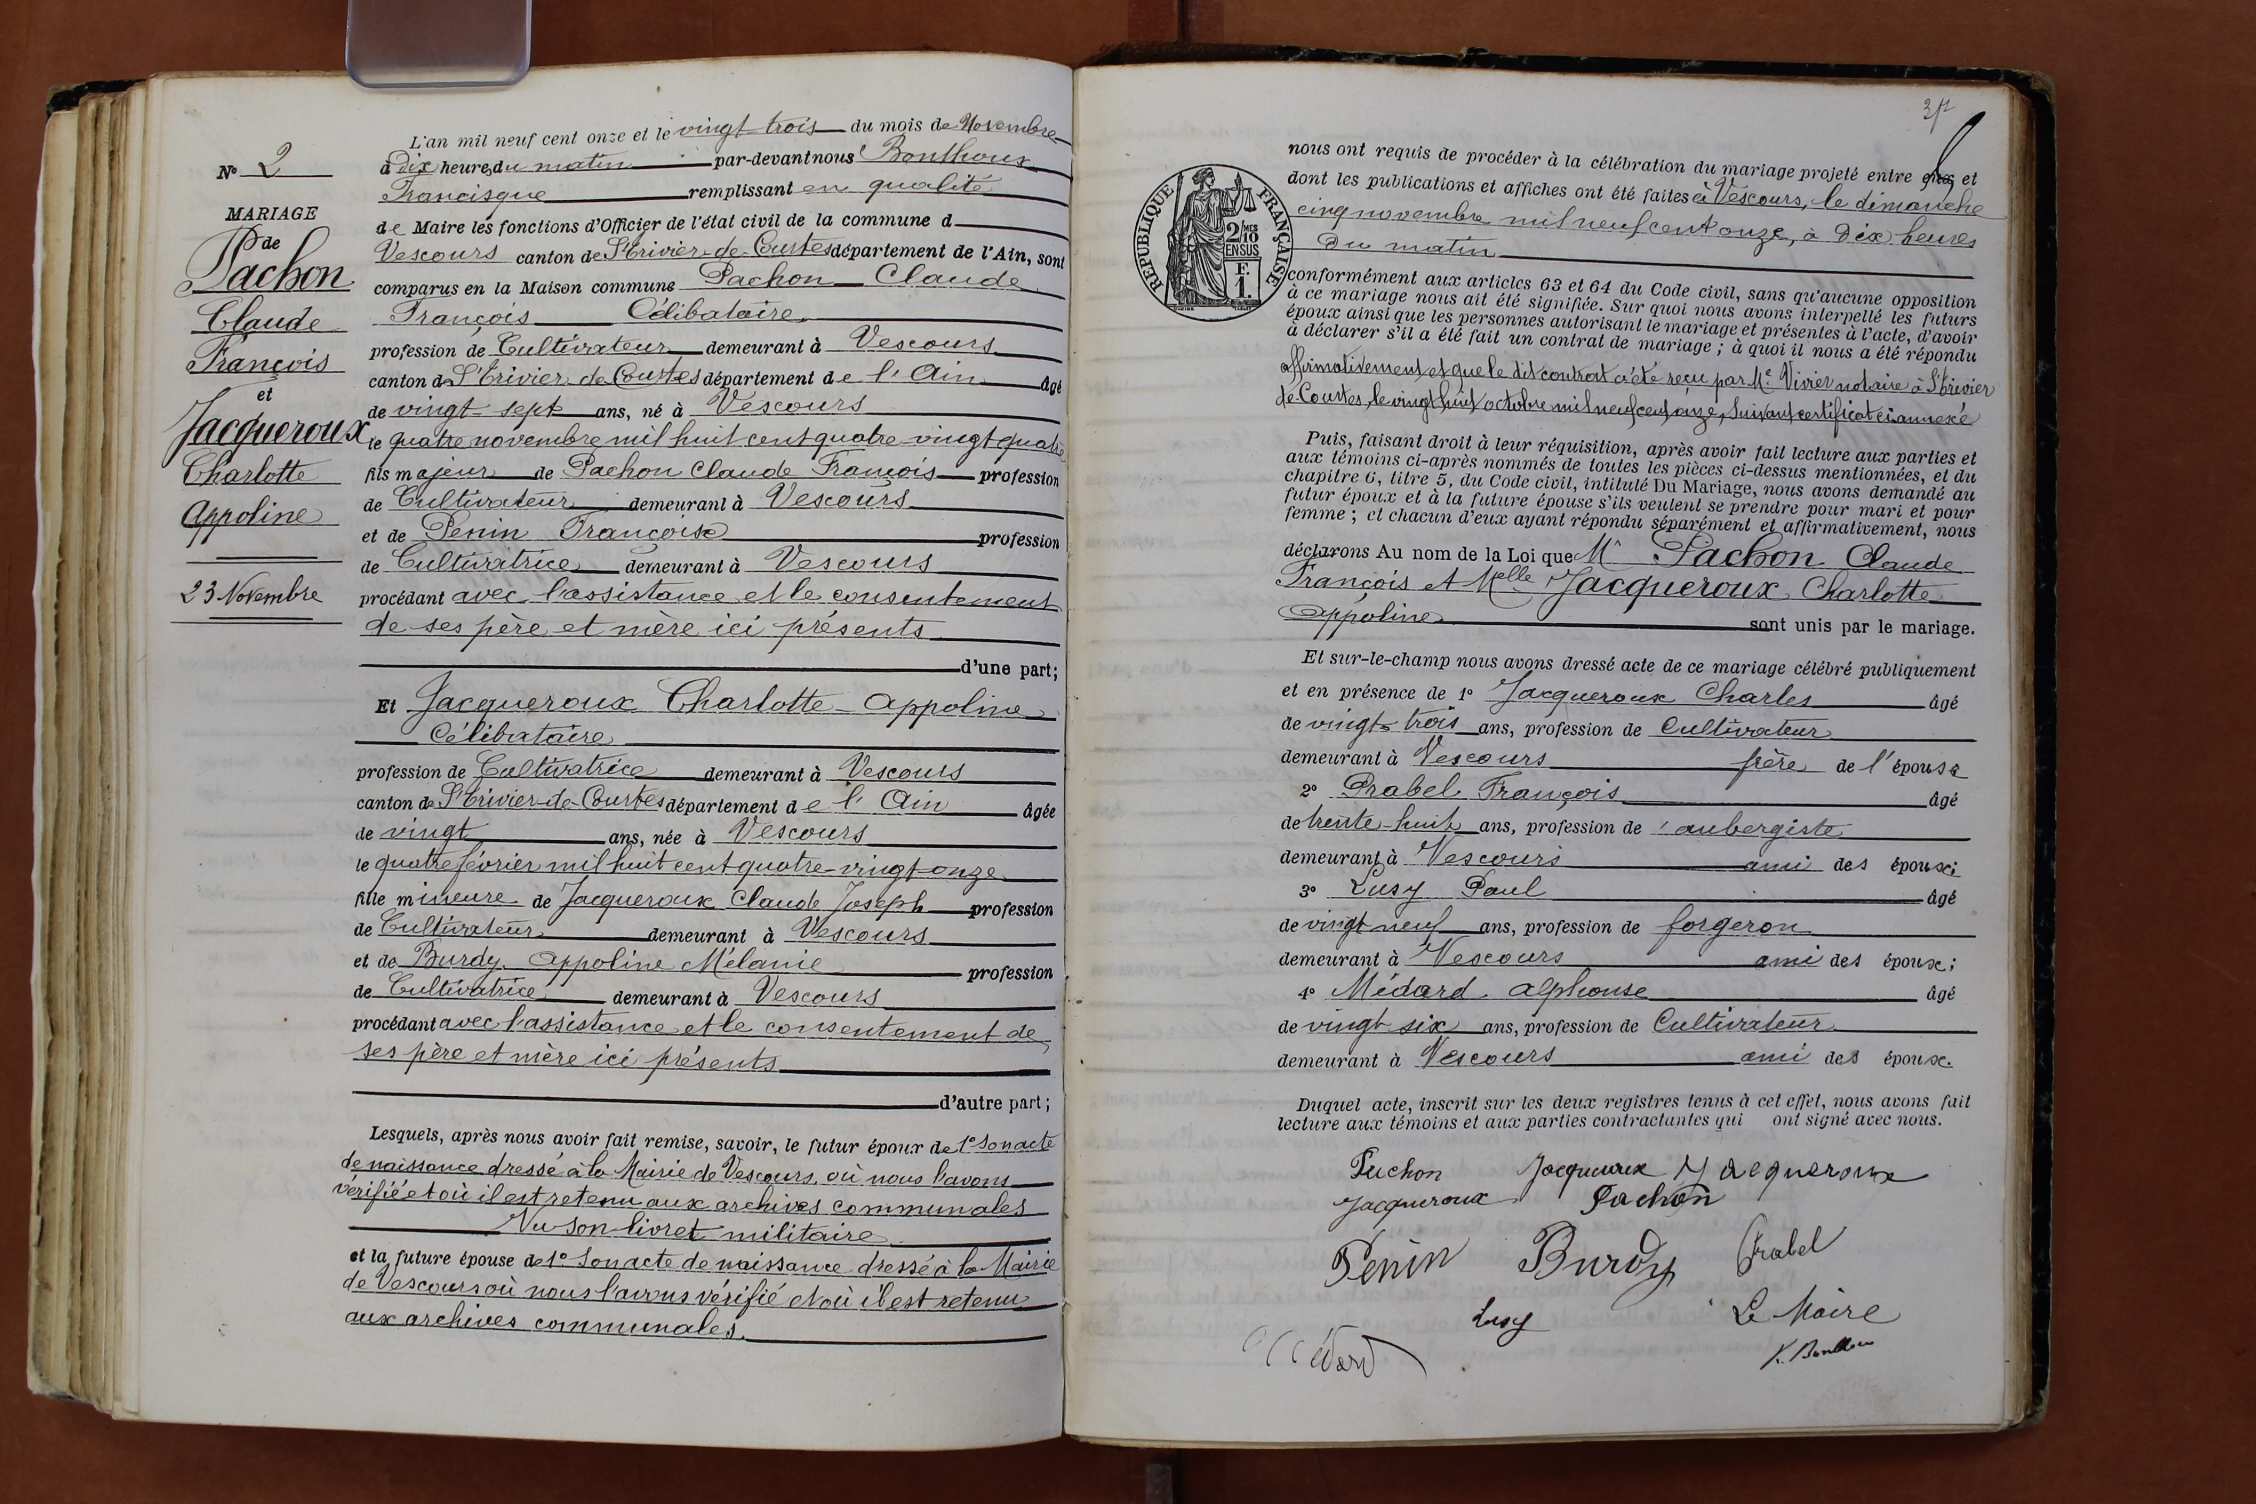 N° 2
MARIAGE
de
Pachon
Claude
François
et
Jacqueroux
Charlotte
Appoline
23 Novembre
L'an mil neuf cent onze et le vingt-trois du mois de Novembre
à Dix heures du matin par-devant nous Bonthoux
Francisque remplissant en qualité
de Maire les fonctions d'Officier de l'état civil de la commune d
Vescours canton de St Trivier-de-Courtes département de l'Ain, sont
comparus en la Maison commune Pachon Claude
François Célibataire
profession de Cultivateur demeurant à Vescours
canton de St Trivier de Courtes département de l'Ain âgé
de vingt-sept ans, né à Vescours
le quatre novembre mil huit cent quatre-vingt quatre
fils majeur de Pachon Claude François profession
de Cultivateur demeurant à Vescours
et de Penin Françoise profession
de Cultivatrice demeurant à Vescours
procédant avec l'assistance et le consentement
de ses père et mère ici présents
d'une part;
Et Jacqueroux Charlotte-Appoline
Célibataire
profession de Cultivatrice demeurant à Vescours
canton de St Trivier-de-Courtes département de l'Ain âgée
de vingt ans, née à Vescours
le quatre février mil huit cent quatre-vingt-onze
fille mineure de Jacqueroux Claude Joseph profession
de Cultivateur demeurant à Vescours
et de Burdy Appoline Mélanie profession
de Cultivatrice demeurant à Vescours
procédant avec l'assistance et le consentement de
ses père et mère ici présents
d'autre part;
Lesquels, après nous avoir fait remise, savoir, le futur époux de 1° Son acte
de naissance dressé à la Mairie de Vescours, où nous l'avons
vérifié et où il est retenu aux archives communales
Vu son livret militaire
et la future épouse de 1° Son acte de naissance dressé à la Mairie
de Vescours où nous l'avons vérifié et où il est retenu
aux archives communales.
RÉPUBLIQUE FRANÇAISE
2/10 MES
EN SUS
F.
1.
nous ont requis de procéder à la célébration du mariage projeté entre eux et
dont les publications et affiches ont été faites à Vescours, le dimanche
cinq novembre mil neuf cent onze, à Dix heures
du matin
conformément aux articles 63 et 64 du Code civil, sans qu'aucune opposition
à ce mariage nous ait été signifiée. Sur quoi nous avons interpellé les futurs
époux ainsi que les personnes autorisant le mariage et présentes à l'acte, d'avoir
à déclarer s'il a été fait un contrat de mariage; à quoi il nous a été répondu
affirmativement et que le dit contrat a été reçu par Me Vivier notaire à St Trivier
de-Courtes, le vingt huit octobre mil neuf cent onze, suivant certificat ci annexé
Puis, faisant droit à leur réquisition, après avoir fait lecture aux parties et
aux témoins ci-après nommés de toutes les pièces ci-dessus mentionnées, et du
chapitre 6, titre 5, du Code civil, intitulé Du Mariage, nous avons demandé au
futur époux et à la future épouse s'ils veulent se prendre pour mari et pour
femme; et chacun d'eux ayant répondu séparément et affirmativement, nous
déclarons Au nom de la Loi que Mr Pachon Claude
François et Melle Jacqueroux Charlotte
Appoline sont unis par le mariage.
Et sur-le-champ nous avons dressé acte de ce mariage célébré publiquement
et en présence de 1° Jacqueroux Charles âgé
de vingt-trois ans, profession de Cultivateur
demeurant à Vescours frère de l'épouse
2° Prabel François âgé
de trente-huit ans, profession de aubergiste
demeurant à Vescours ami des époux;
3° Lusy Paul âgé
de vingt neuf ans, profession de forgeron
demeurant à Vescours ami des époux;
4° Médard Alphonse âgé
de vingt-six ans, profession de Cultivateur
demeurant à Vescours ami des époux.
Duquel acte, inscrit sur les deux registres tenus à cet effet, nous avons fait
lecture aux témoins et aux parties contractantes qui ont signé avec nous.
Puchon Jacqueroux Jacqueroux
Jacqueroux Pachon
Penin Burdy Prabel
Lusy Le Maire
Médard F. Bonthoux